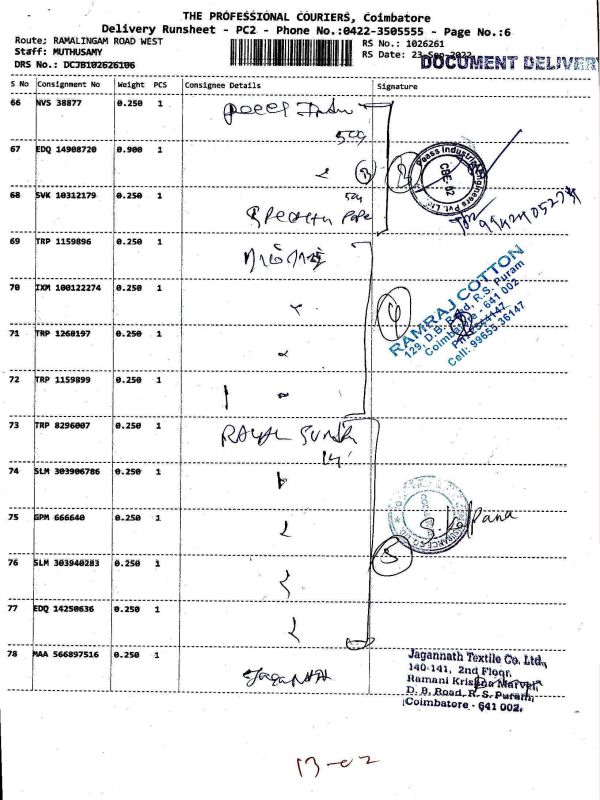 THE PROFESSIONAL COURIERS, Coimbatore
Delivery Runsheet - PC2 - Phone No.:0422-3505555 - Page No.:6
Route; RAMALINGAM ROAD WEST
Staff: MUTHUSAMY
DRS No.: DCJB102626106
RS No.: 1026261
RS Date: 23-Sep-2022
DOCUMENT DELIVER
S No Consignment No Weight PCS Consignee Details Signature
66 NVS 38877 0.250 1
67 EDQ 14908720 0.900 1
Peass Industrial Engineers Pvt. Ltd.
CBE 02
68 SVK 10312179 0.250 1
69 TRP 1159896 0.250 1
70 IXM 100122274 0.250 1
4
RAMRAJ COTTON
129, D.B. Road, R.S. Puram
Coimbatore - 641 002
Cell: 99655 36147
71 TRP 1260197 0.250 1
72 TRP 1159899 0.250 1
73 TRP 8296007 0.250 1
74 SLM 303906786 0.250 1
75 GPM 666640 0.250 1
S. Kalpana
5
76 SLM 303940283 0.250 1
77 EDQ 14250636 0.250 1
78 MAA 566897516 0.250 1
Jagannath Textile Co. Ltd.,
140-141, 2nd Floor,
Ramani Krishna Marvel,
D. B. Road, R. S. Puram,
Coimbatore - 641 002.
13-02